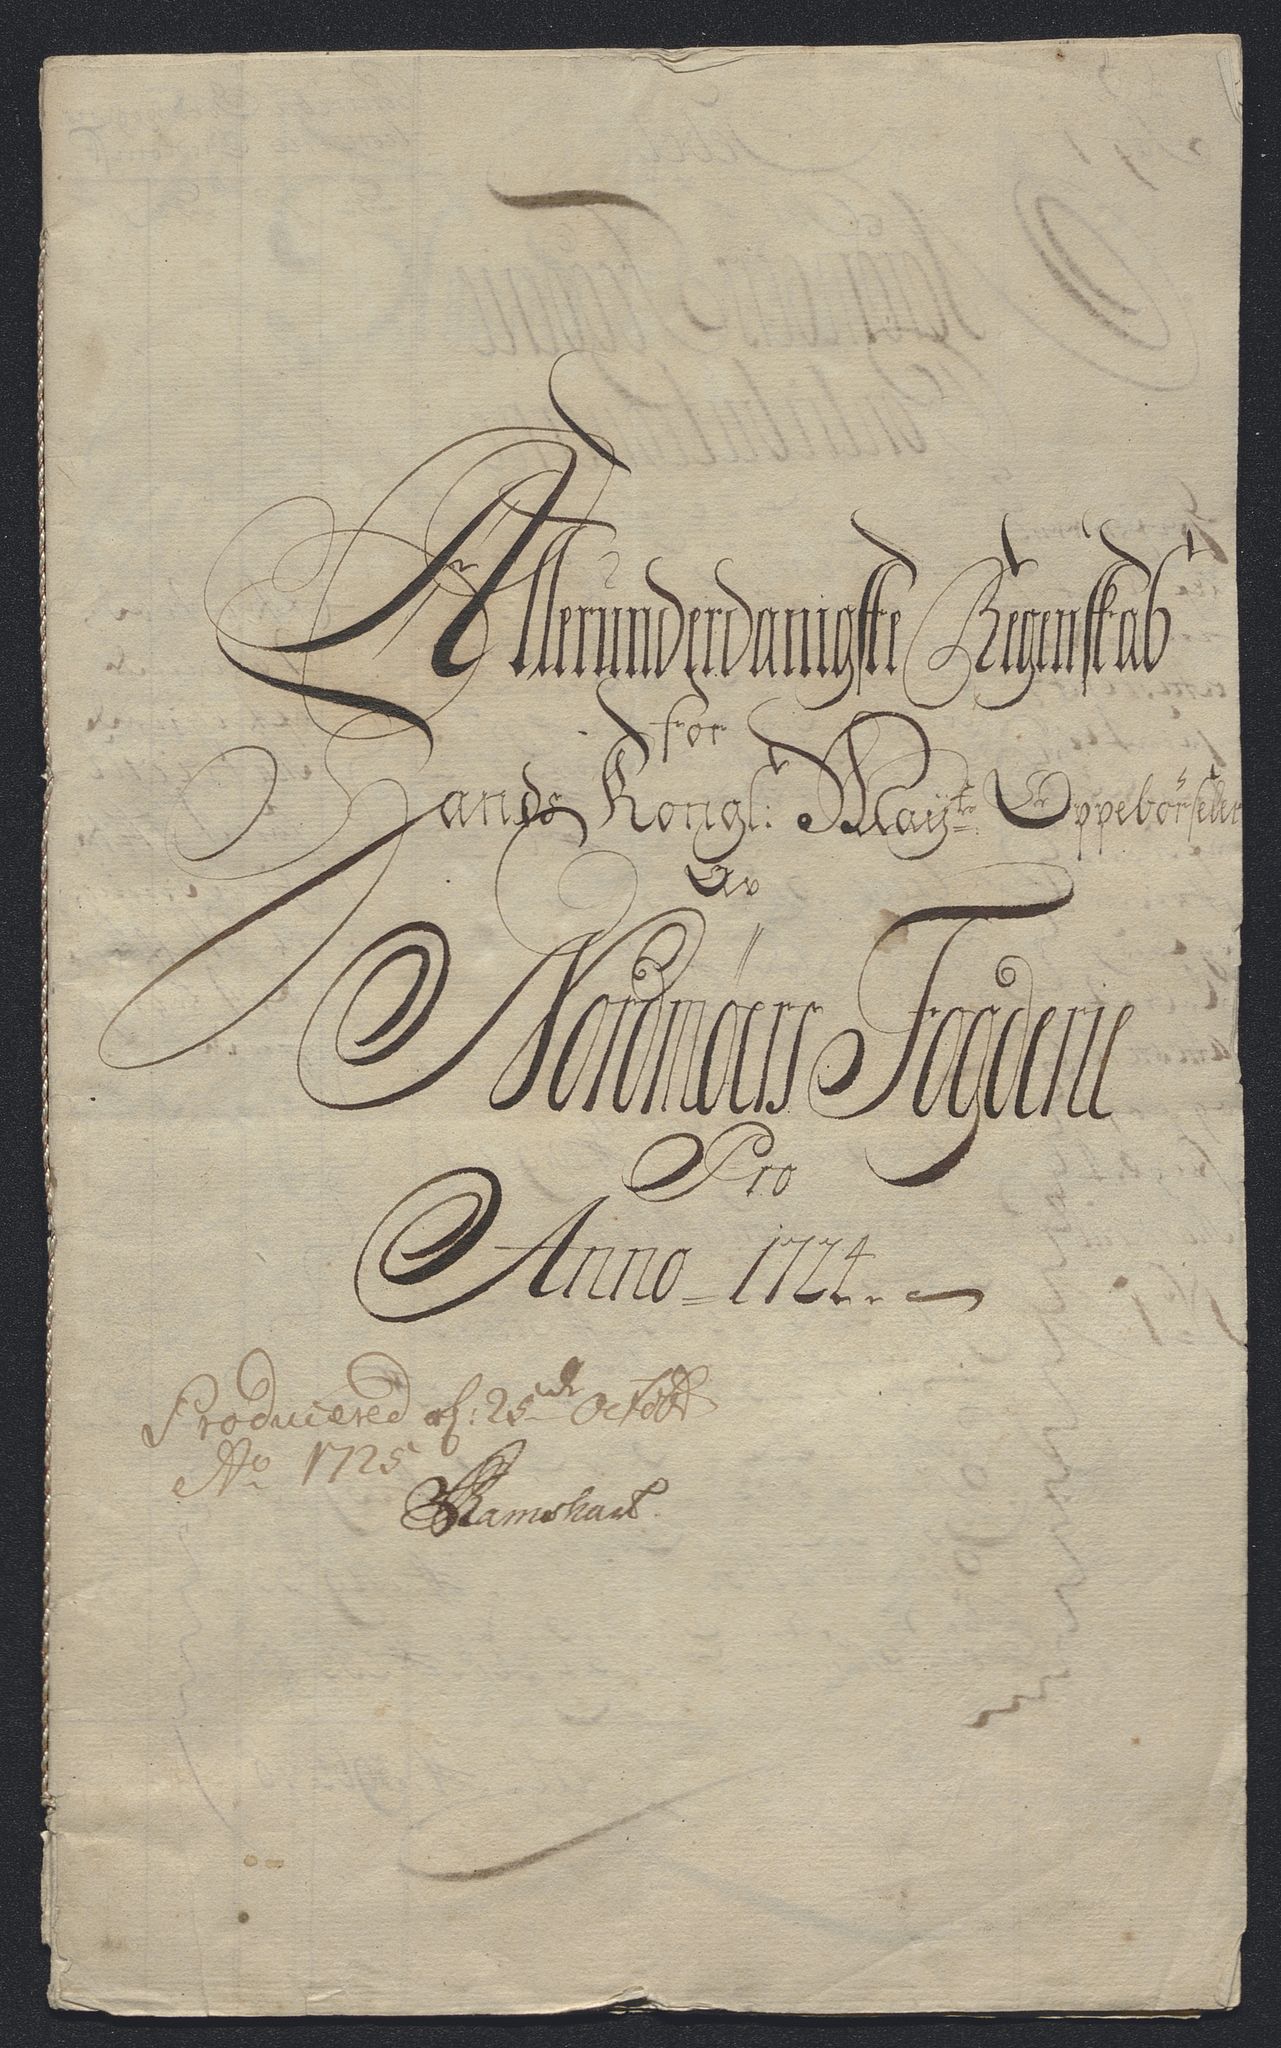 Allerunderdanigste Regenskab
for
Hands Kongl: Mayts Oppebørseler
Av
Nordmøers Fogderie
Pro
Anno = 1724.
Producered d: 25de Octobr
Ao 1725
Ramshart.